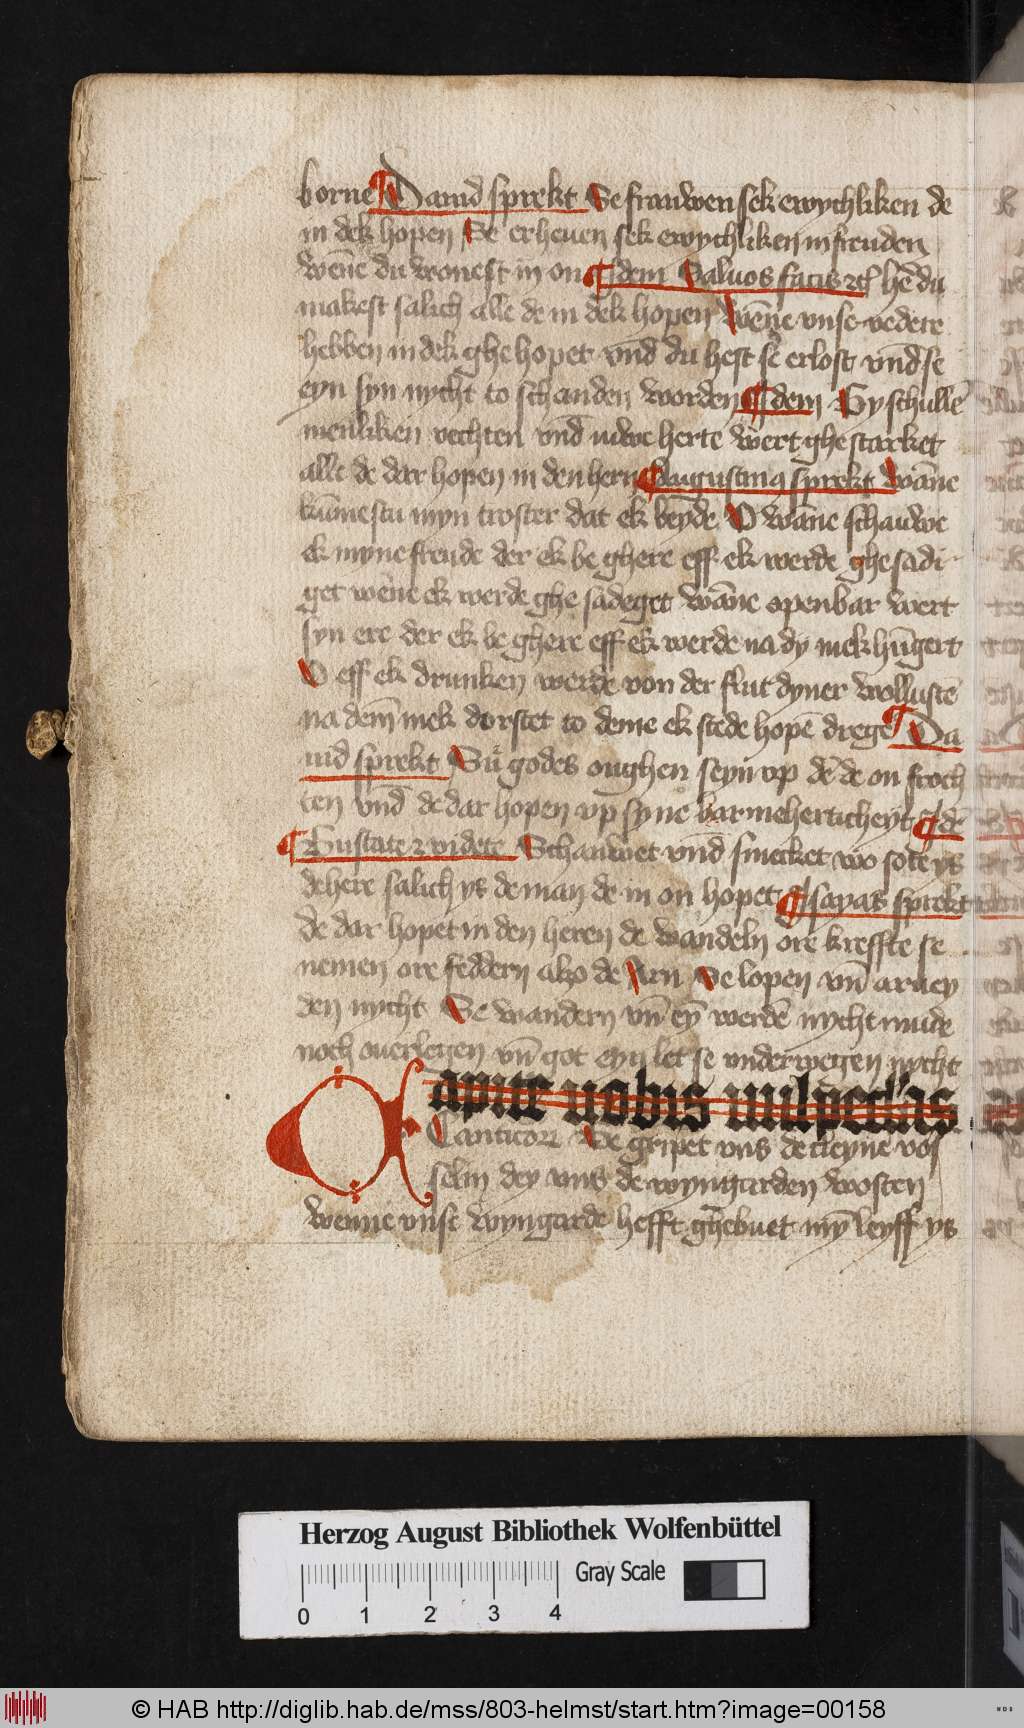 borne ¶ Dauid sprekt Se frauwen sek ewychliken de
in dek hopen Se erheuen sek ewychliken in freuden
wēne du wonest in on ¶ Idem Saluos facis rc̄ hē du
makest salich alle de in dek hopen Wēne vnse vedere
hebben in dek ghe hopet vnd du hest se erlost vnd se
eyn syn nycht to schanden worden ¶ Idem Gy schullē
menliken vechten vnd iuwe herte wert ghe starket
alle de dar hopen in den hern ¶ Augustinꝯ sprekt Wāne
kūmestu myn troster dat ek beyde O wāne schauwe
ek myne freude der ek be ghere eff ek werde ghe sadi
get wēne ek werde ghe sadeget wāne openbar wert
syn ere der ek be ghere eff ek werde na dy mek hūgert
O eff ek drunken werde von der flut dyner wollustē
na dem mek dorstet to deme ek stede hopē drege ¶ Da
uid sprekt Su godes oughen seyn vp dē de on froch
ten vnd de dar hopen vp syne barmehertecheyt ¶ Idē
¶ Gustate ⁊ videte Schauwet vnd smecket wo sote ys
de here salich ys de man de in on hopet ¶ Isayas sprekt
de dar hopet in den heren de wandeln ore kreffte se
nemen ore feddern alzo de Arn Se lopen vn̄ arbey
den nycht Se wandern vn̄ eȳ werdē nycht mude
noch ouerlegen vn̄ got eyn let se vnderwegen nycht
Capite nobis uulpeculas
Canticorꝝ Be gripet vns de cleyne vos
selin dey vns de wyngarden wosten
wenne vnse wyngarde hefft ghebuet mȳ leyff ys
Herzog August Bibliothek Wolfenbüttel
Gray Scale
0 1 2 3 4
© HAB http://diglib.hab.de/mss/803-helmst/start.htm?image=00158